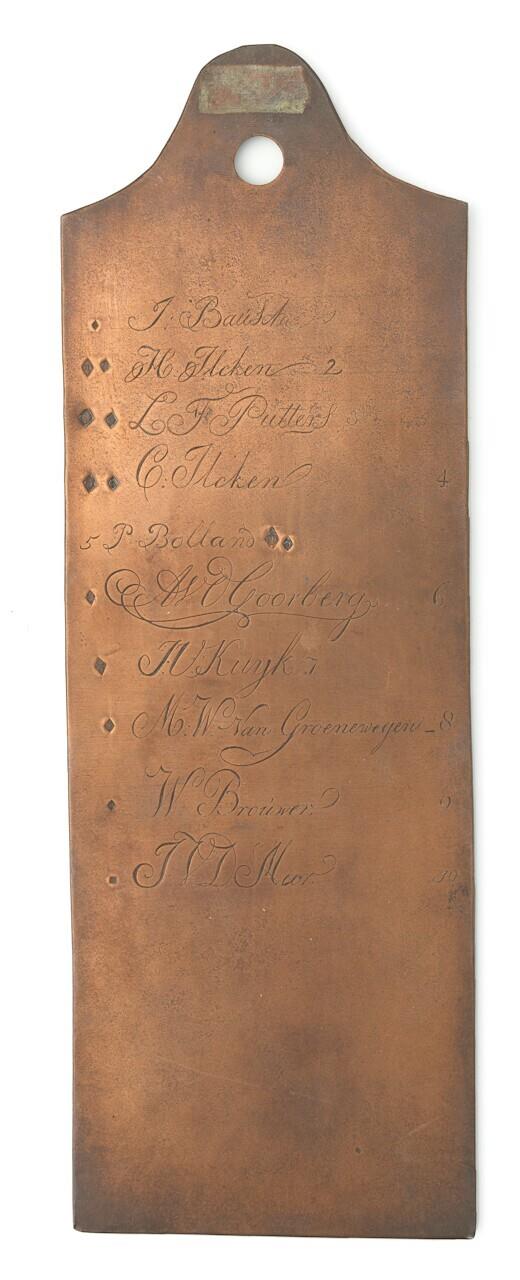 H. Ilcken 2
L. F. Putters 3
C: Ilcken 4
5 P. Bolland
AVD Coorberg 6
J.V. Kuyk 7
M: W: Van Groeneweyen - 8
W. Brouwer. 9
J V D Meer. 10